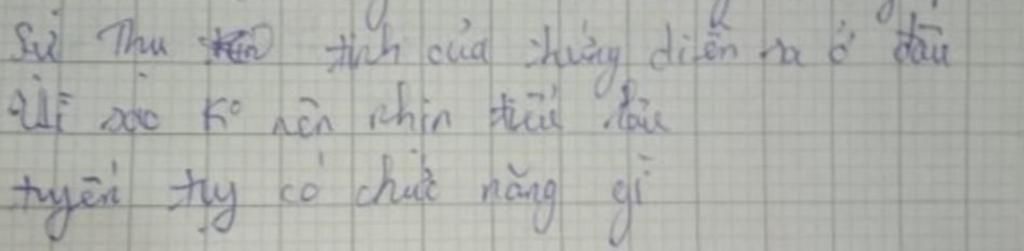 Sự Thụ tinh của chúng diễn ra ở đâu
Vì sao K° nên nhịn tiểu lâu
tuyến tụy có chức năng gì